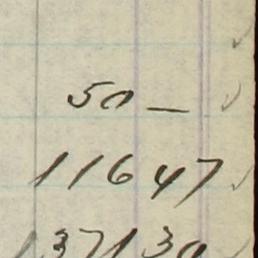 50 —
11647
137130